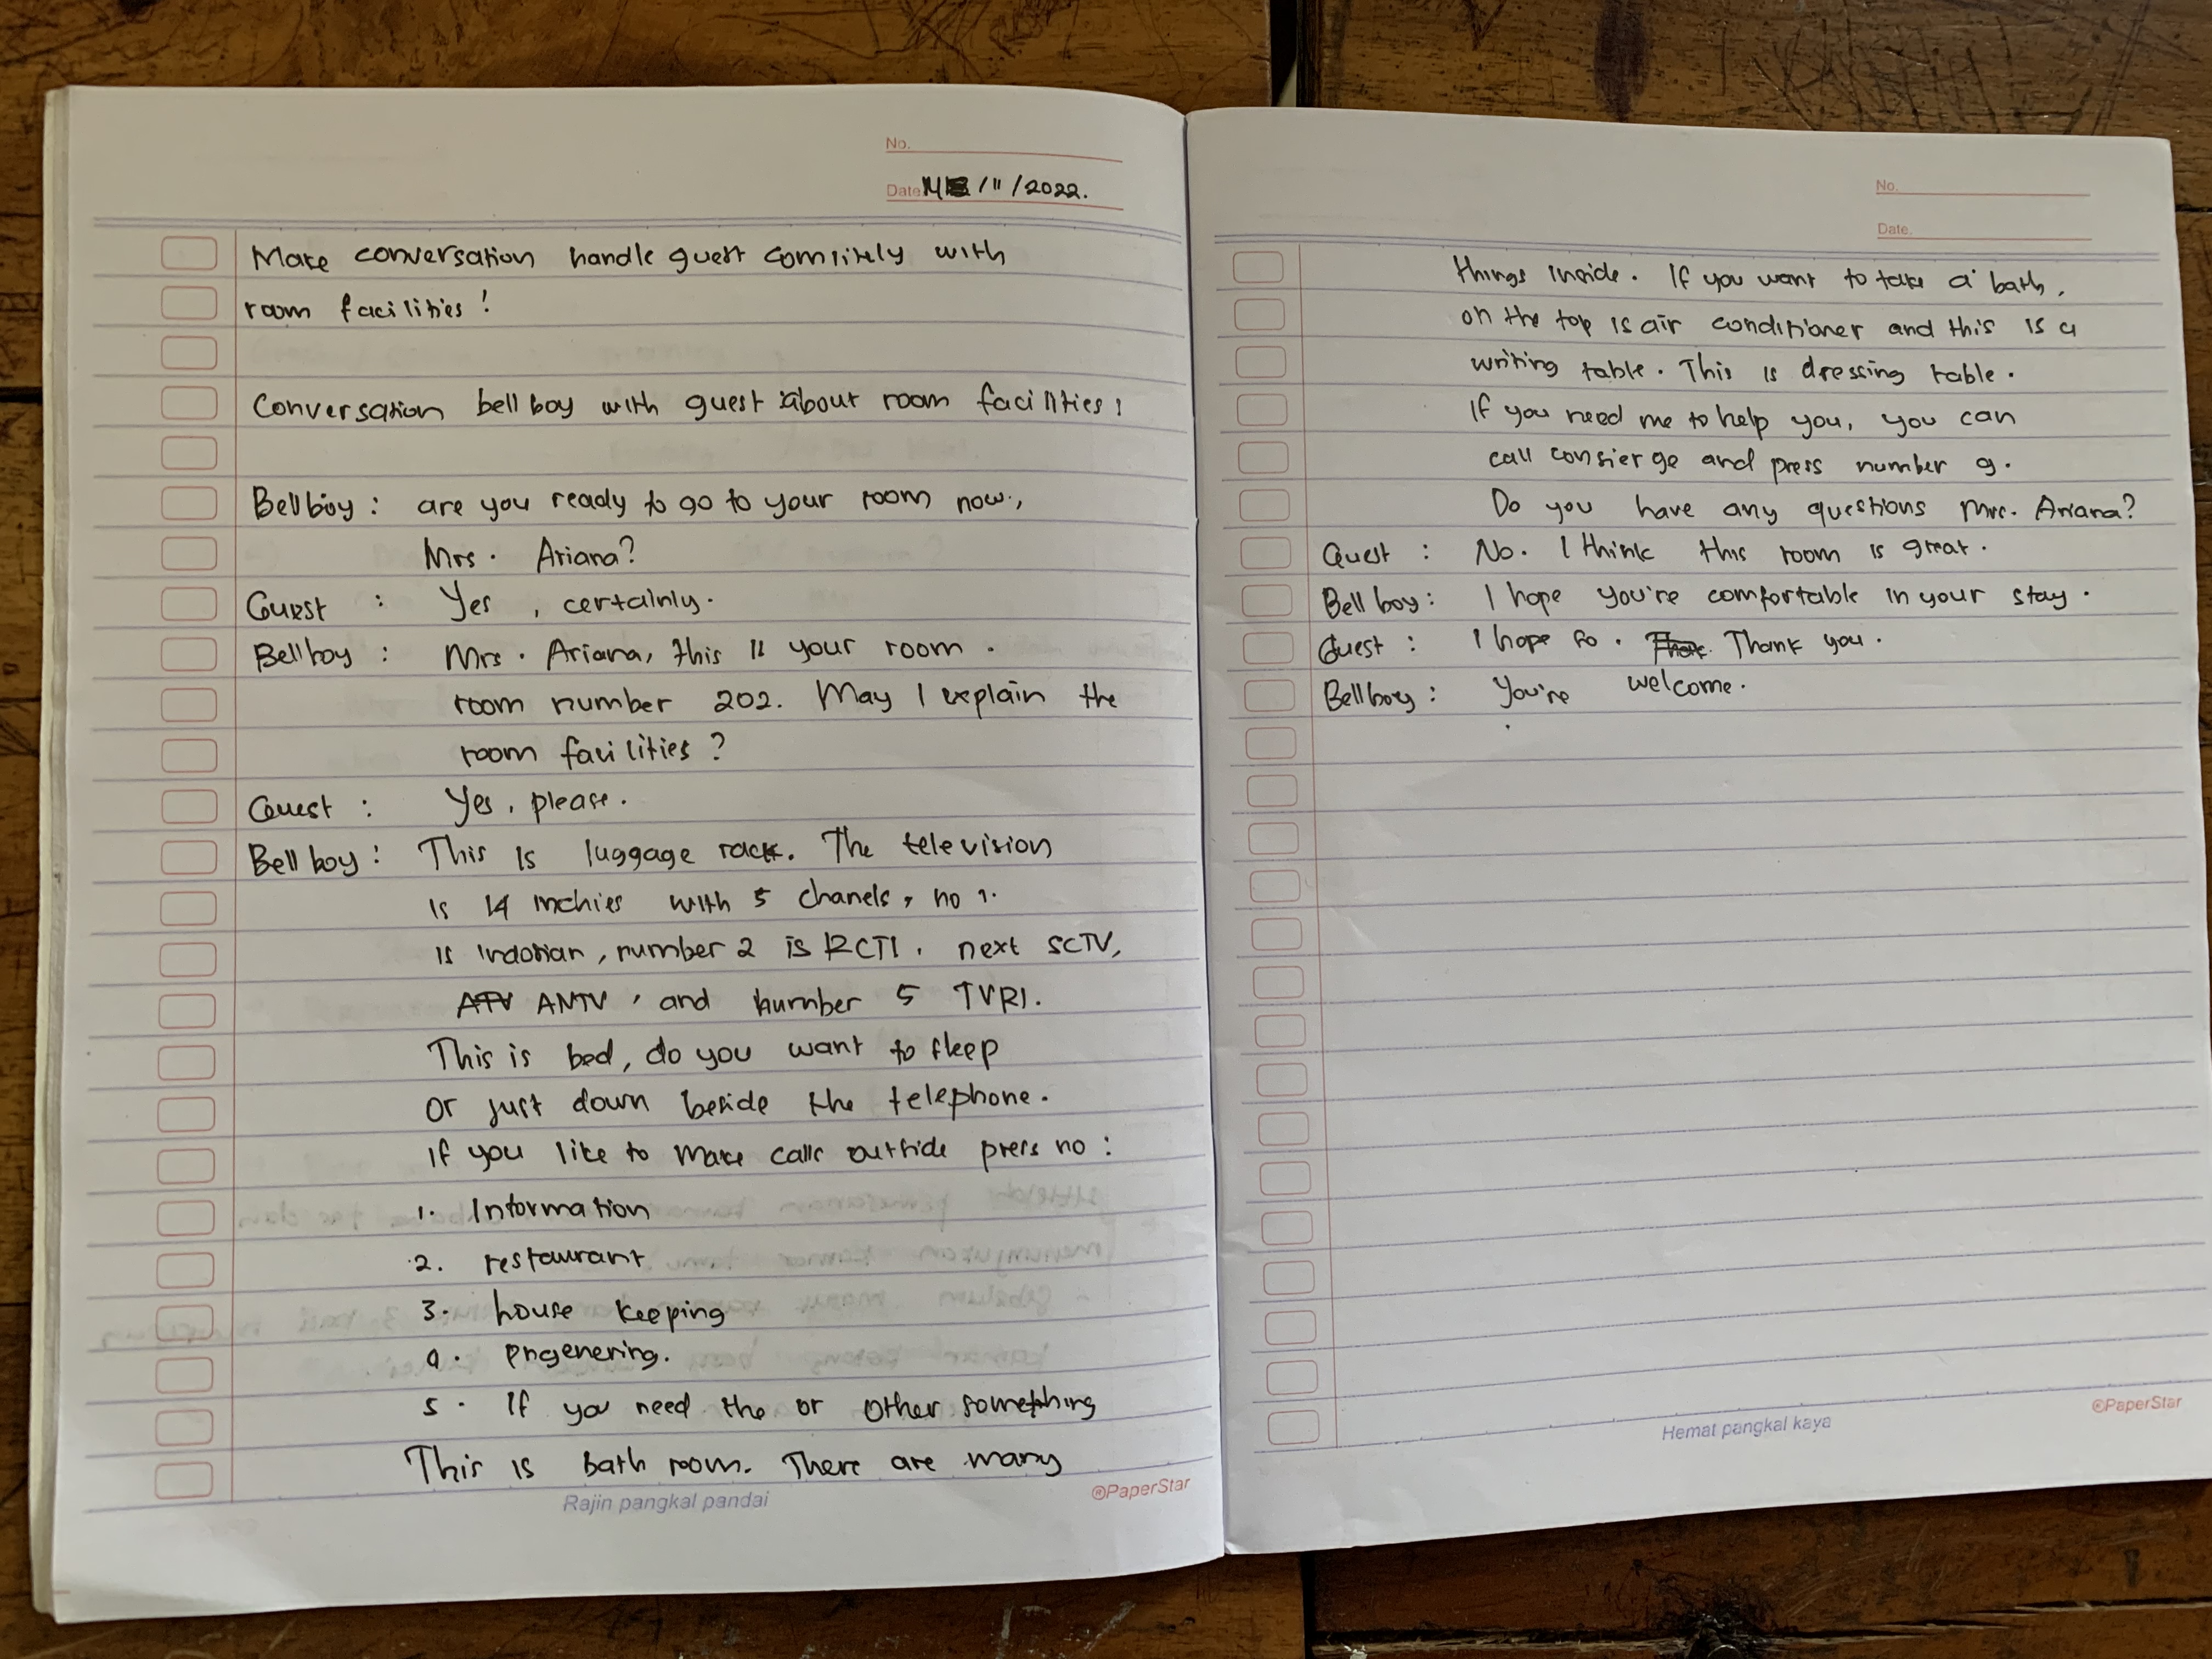 No.
Date 14/11/2022.
Make conversation handle guest comizely with
room facilities!
Conversation bell boy with guest about room facilities!
Bellboy : are you ready to go to your room now,
Mrs. Ariana?
Guest : Yes, certainly.
Bellboy : Mrs. Ariana, this is your room.
room number 202. May I explain the
room facilities?
Guest : Yes, please.
Bell boy : This is luggage rack. The television
is 14 inchies with 5 chanels, no 1.
is indosiar, number 2 is RCTI, next SCTV,
ANTV, and humber 5 TVRI.
This is bed, do you want to sleep
Or just down beside the telephone.
if you like to make calls outside press no :
1. Information
2. restaurant
3. house keeping
4. engenering.
5. If you need the or other something
This is bath room. There are many
Rajin pangkal pandai
®PaperStar
No.
Date.
things inside. If you want to take a bath,
on the top is air conditioner and this is a
writing table. This is dressing table.
If you need me to help you, you can
call consierge and press number 9.
Do you have any questions Mrs. Ariana?
Guest : No. I think this room is great.
Bell boy : I hope you're comfortable in your stay.
Guest : I hope so. Thank you.
Bellboy : You're welcome.
Hemat pangkal kaya
®PaperStar